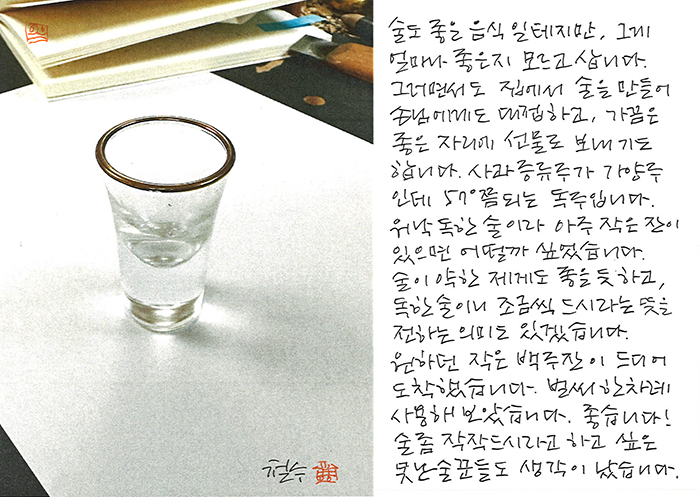 술도 좋은 음식일테지만, 그게
얼마나 좋은지 모르고 삽니다.
그러면서도 집에서 술을 만들어
손님에게도 대접하고, 가끔은
좋은 자리에 선물로 보내기도
합니다. 사과증류주가 가양주
인데 57°쯤되는 독주입니다.
워낙 독한 술이라 아주 작은 잔이
있으면 어떨까 싶었습니다.
술이 약한 제게도 좋을 듯하고,
독한술이니 조금씩 드시라는 뜻을
전하는 의미도 있겠습니다.
원하던 작은 백주잔이 드디어
도착했습니다. 벌써 한차례
사용해 보았습니다. 좋습니다!
술좀 작작드시라고 하고 싶은
못난 술꾼들도 생각이 났습니다.
철수